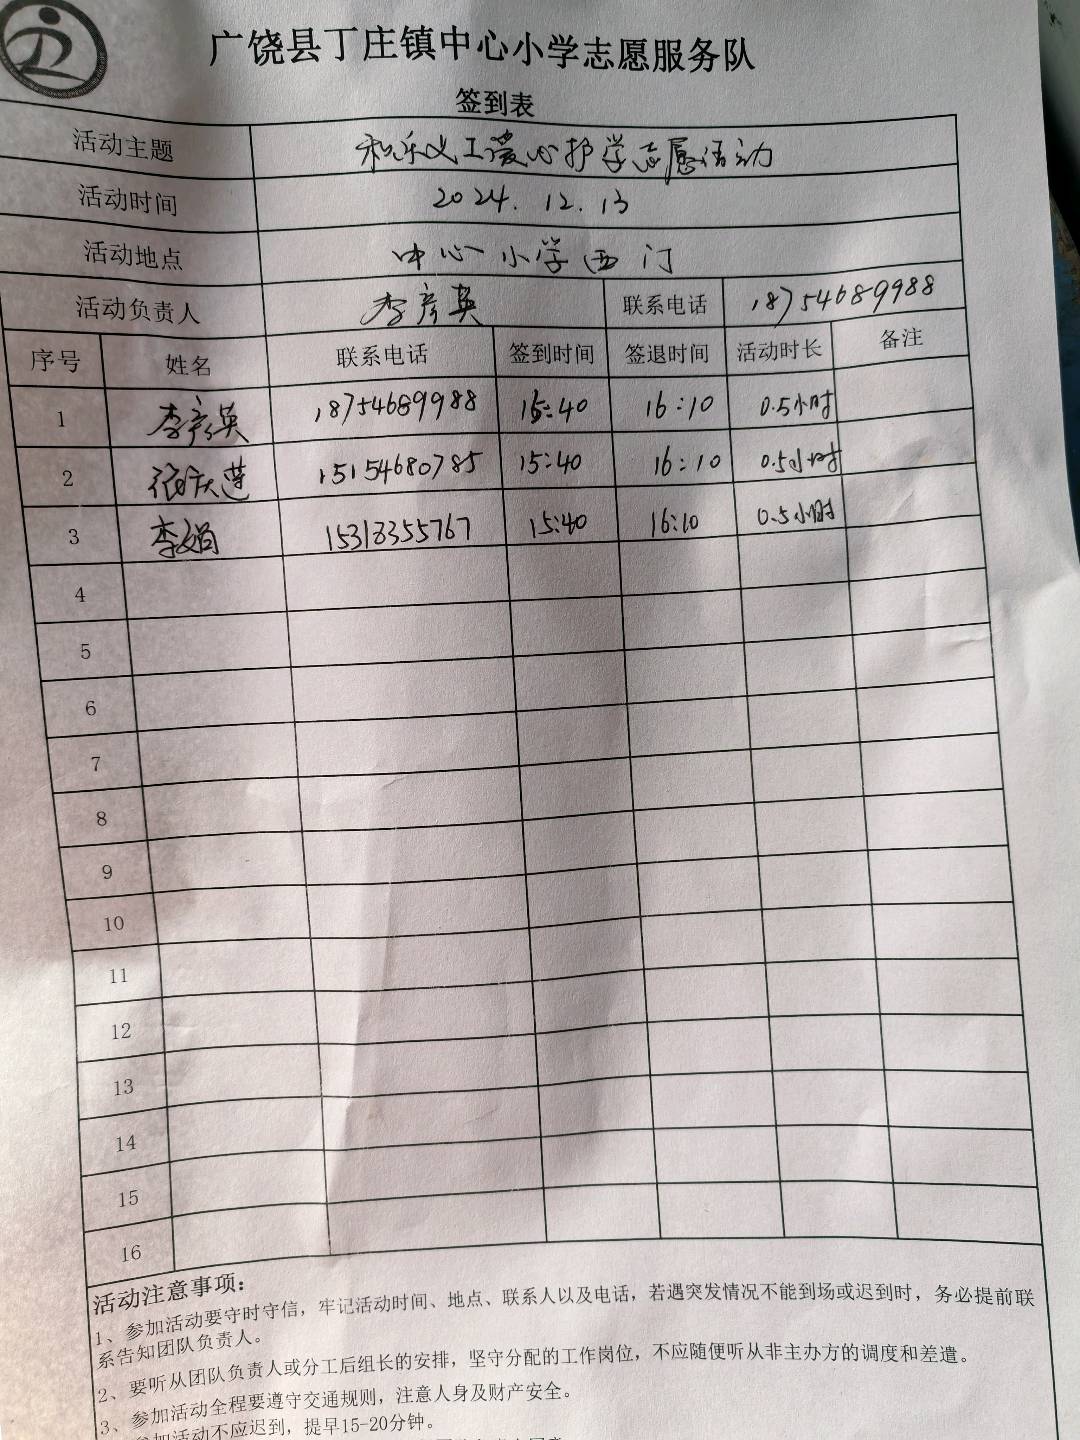 广饶县丁庄镇中心小学志愿服务队
签到表
活动主题 和乐义工爱心护学志愿活动
活动时间 2024.12.13
活动地点 中心小学西门
活动负责人 李彦英 联系电话 18754689988
序号 姓名 联系电话 签到时间 签退时间 活动时长 备注
1 李彦英 18754689988 15:40 16:10 0.5小时
2 张庆莲 15154680785 15:40 16:10 0.5小时
3 李娟 15313355767 15:40 16:10 0.5小时
4
5
6
7
8
9
10
11
12
13
14
15
16
活动注意事项：
1、参加活动要守时守信，牢记活动时间、地点、联系人以及电话，若遇突发情况不能到场或迟到时，务必提前联
系告知团队负责人。
2、要听从团队负责人或分工后组长的安排，坚守分配的工作岗位，不应随便听从非主办方的调度和差遣。
3、参加活动全程要遵守交通规则，注意人身及财产安全。
参加活动不应迟到，提早15-20分钟。